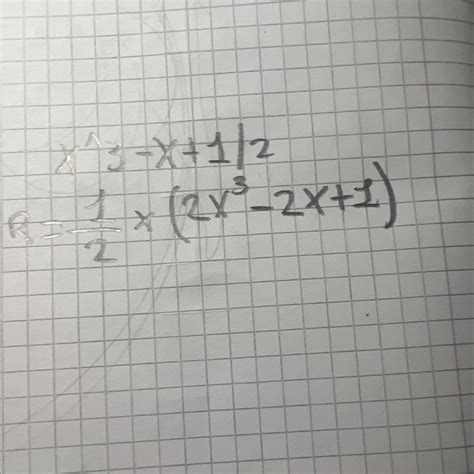 x^3-x+1/2
R=1/2 × (2x³-2x+1)